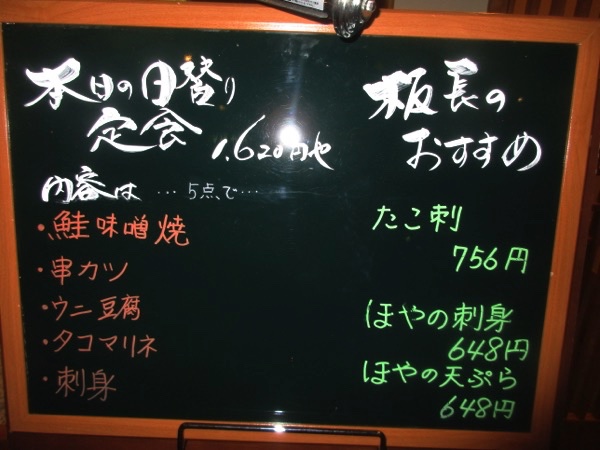 本日の日替り
定食
1,620円也
内容は…5点で…
・鮭味噌焼
・串カツ
・ウニ豆腐
・タコマリネ
・刺身
板長の
おすすめ
たこ刺
756円
ほやの刺身
648円
ほやの天ぷら
648円